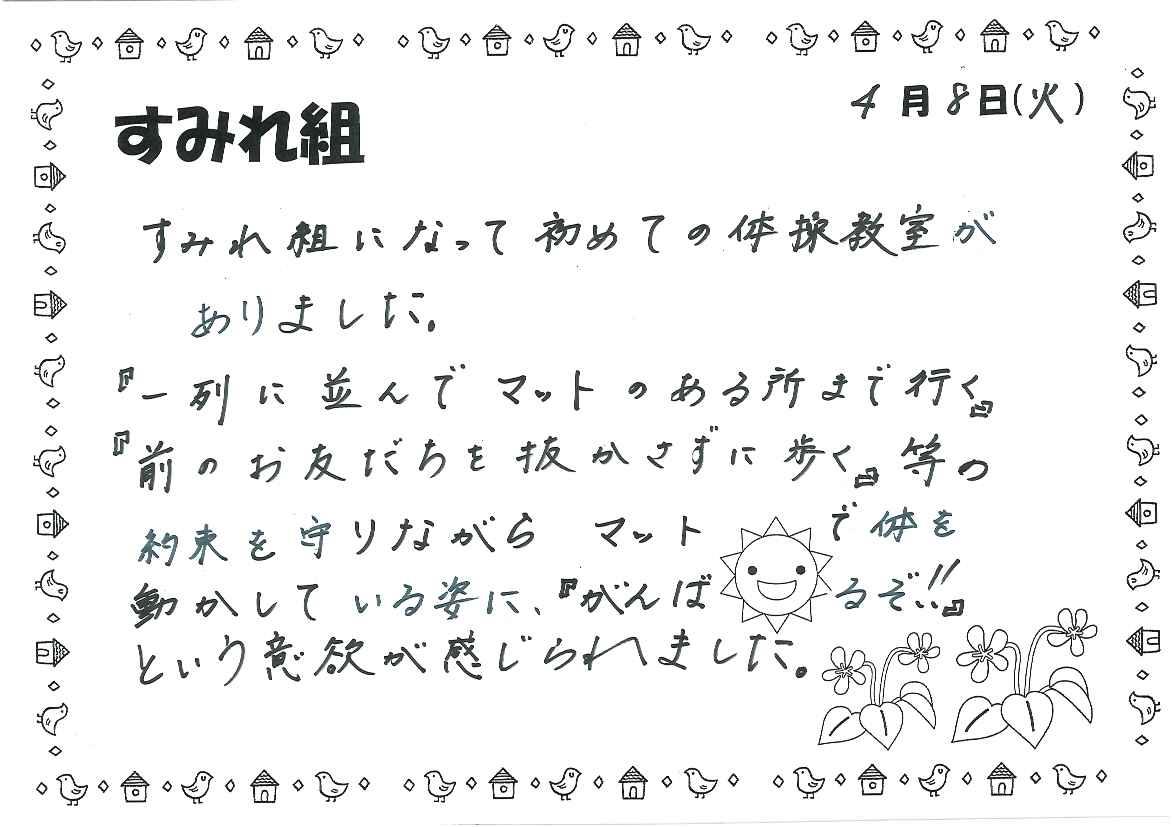 4月8日(火)
すみれ組
すみれ組になって初めての体操教室が
ありました。
『一列に並んでマットのある所まで行く』
『前のお友だちを抜かさずに歩く』等の
約束を守りながら マットで体を
動かしている姿に、『がんばるぞ!!』
という意欲が感じられました。